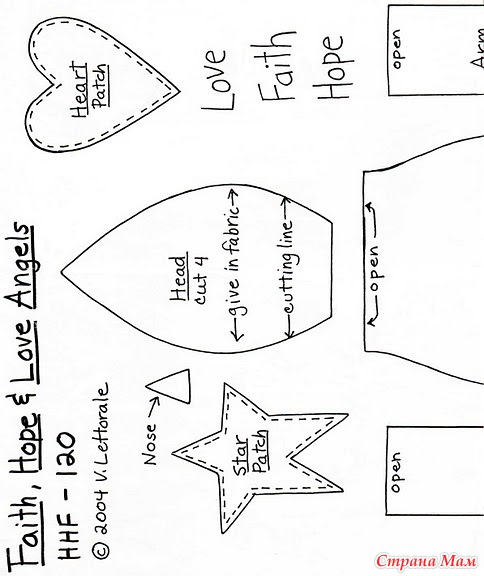 Faith, Hope & Love Angels
HHF - 120
© 2004 V. Lettorale
Nose
Star
Patch
Head
cut 4
give in fabric
cutting line
Heart
Patch
Love
Faith
Hope
open
open
open
Arm
Страна Мам